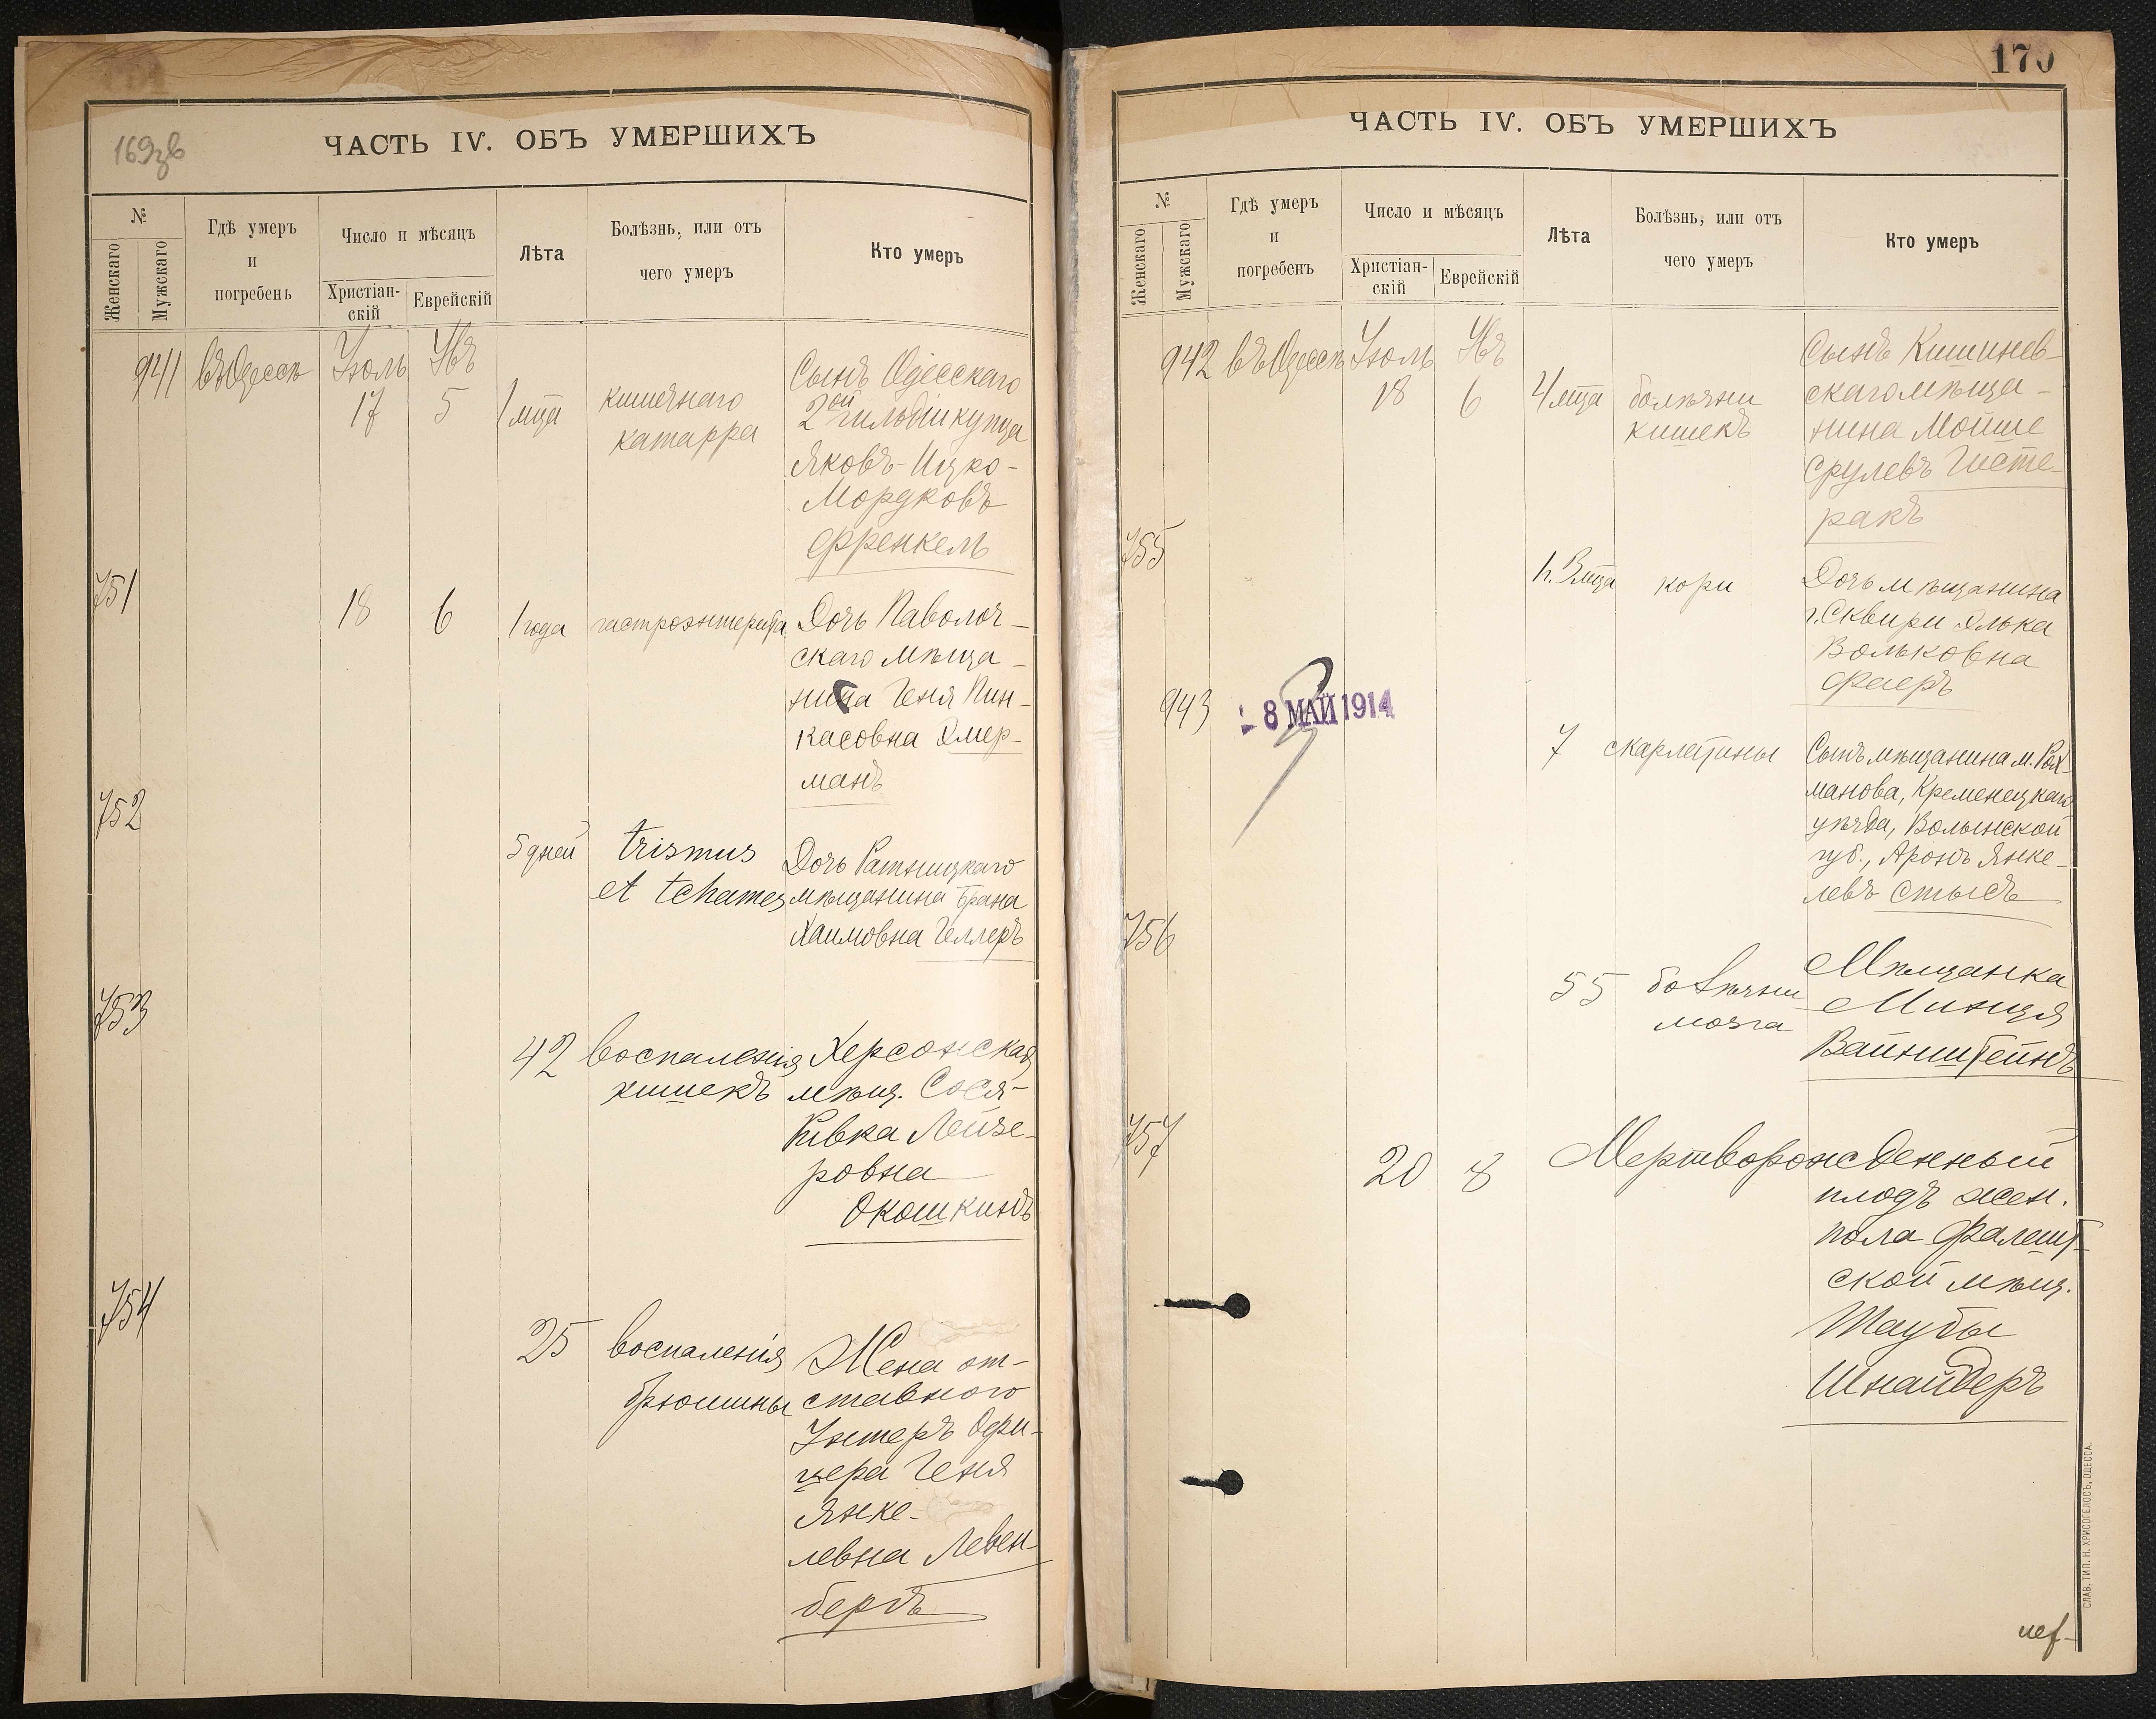 169зв
ЧАСТЬ IV. ОБЪ УМЕРШИХЪ
№
Женскаго
Мужскаго
Гдѣ умеръ
и
погребенъ
Число и мѣсяцъ
Христіан-
скій
Еврейскій
Лѣта
Болѣзнь, или отъ
чего умеръ
Кто умеръ
941 въ Одессѣ Іюль Овъ
17 5 1 мца
кишечнаго
катарра
Сынъ Одесскаго
2ой гильдіи купца
Яковъ-Ицко-
Мордковъ
Френкель
751
18 6 1 года гастроэнтерита
Дочь Паволоч-
скаго мѣща-
нина Геня Пин-
касовна Элмер-
манъ
752
5 дней
trismus
et tehames
Дочь Ратницкаго
мѣщанина Брана
Хаимовна Геллеръ
753
42 воспаленія
кишекъ
Херсонская
мѣщ. Сося-
Ривка Лейзе-
ровна
Окошкинъ
754
25 воспаленія
брюшины
Жена от-
ставного
Унтеръ Офи-
цера Геня
Янке-
левна Левен-
бергъ
170
ЧАСТЬ IV. ОБЪ УМЕРШИХЪ
№
Женскаго
Мужскаго
Гдѣ умеръ
и
погребенъ
Число и мѣсяцъ
Христіан-
скій
Еврейскій
Лѣта
Болѣзнь, или отъ
чего умеръ
Кто умеръ
942 въ Одессѣ Іюль Овъ
18 6 4 мца
болѣзни
кишекъ
Сынъ Кишинев-
скаго мѣща-
нина Мойше
Срулевъ Гисте-
ракъ
755
1 г. 3 мца кори
Дочь мѣщанина
г. Сквири Элька
Вольковна
Фаеръ
943
- 8 МАЙ 1914
7 скарлатины
Сынъ мѣщанина м. Рах-
манова, Кременецкаго
уѣзда, Волынской
губ., Аронъ Янке-
левъ Стысъ
756
55 болѣзни
мозга
Мѣщанка
Минця
Вайнштейнъ
757
20 8
Мертворожденный
плодъ жен.
пола Фалешт-
ской мѣщ.
Таубы
Шнайдеръ
СЛАВ. ТИП. Н. ХРИСОГЕЛОСЪ, ОДЕССА.